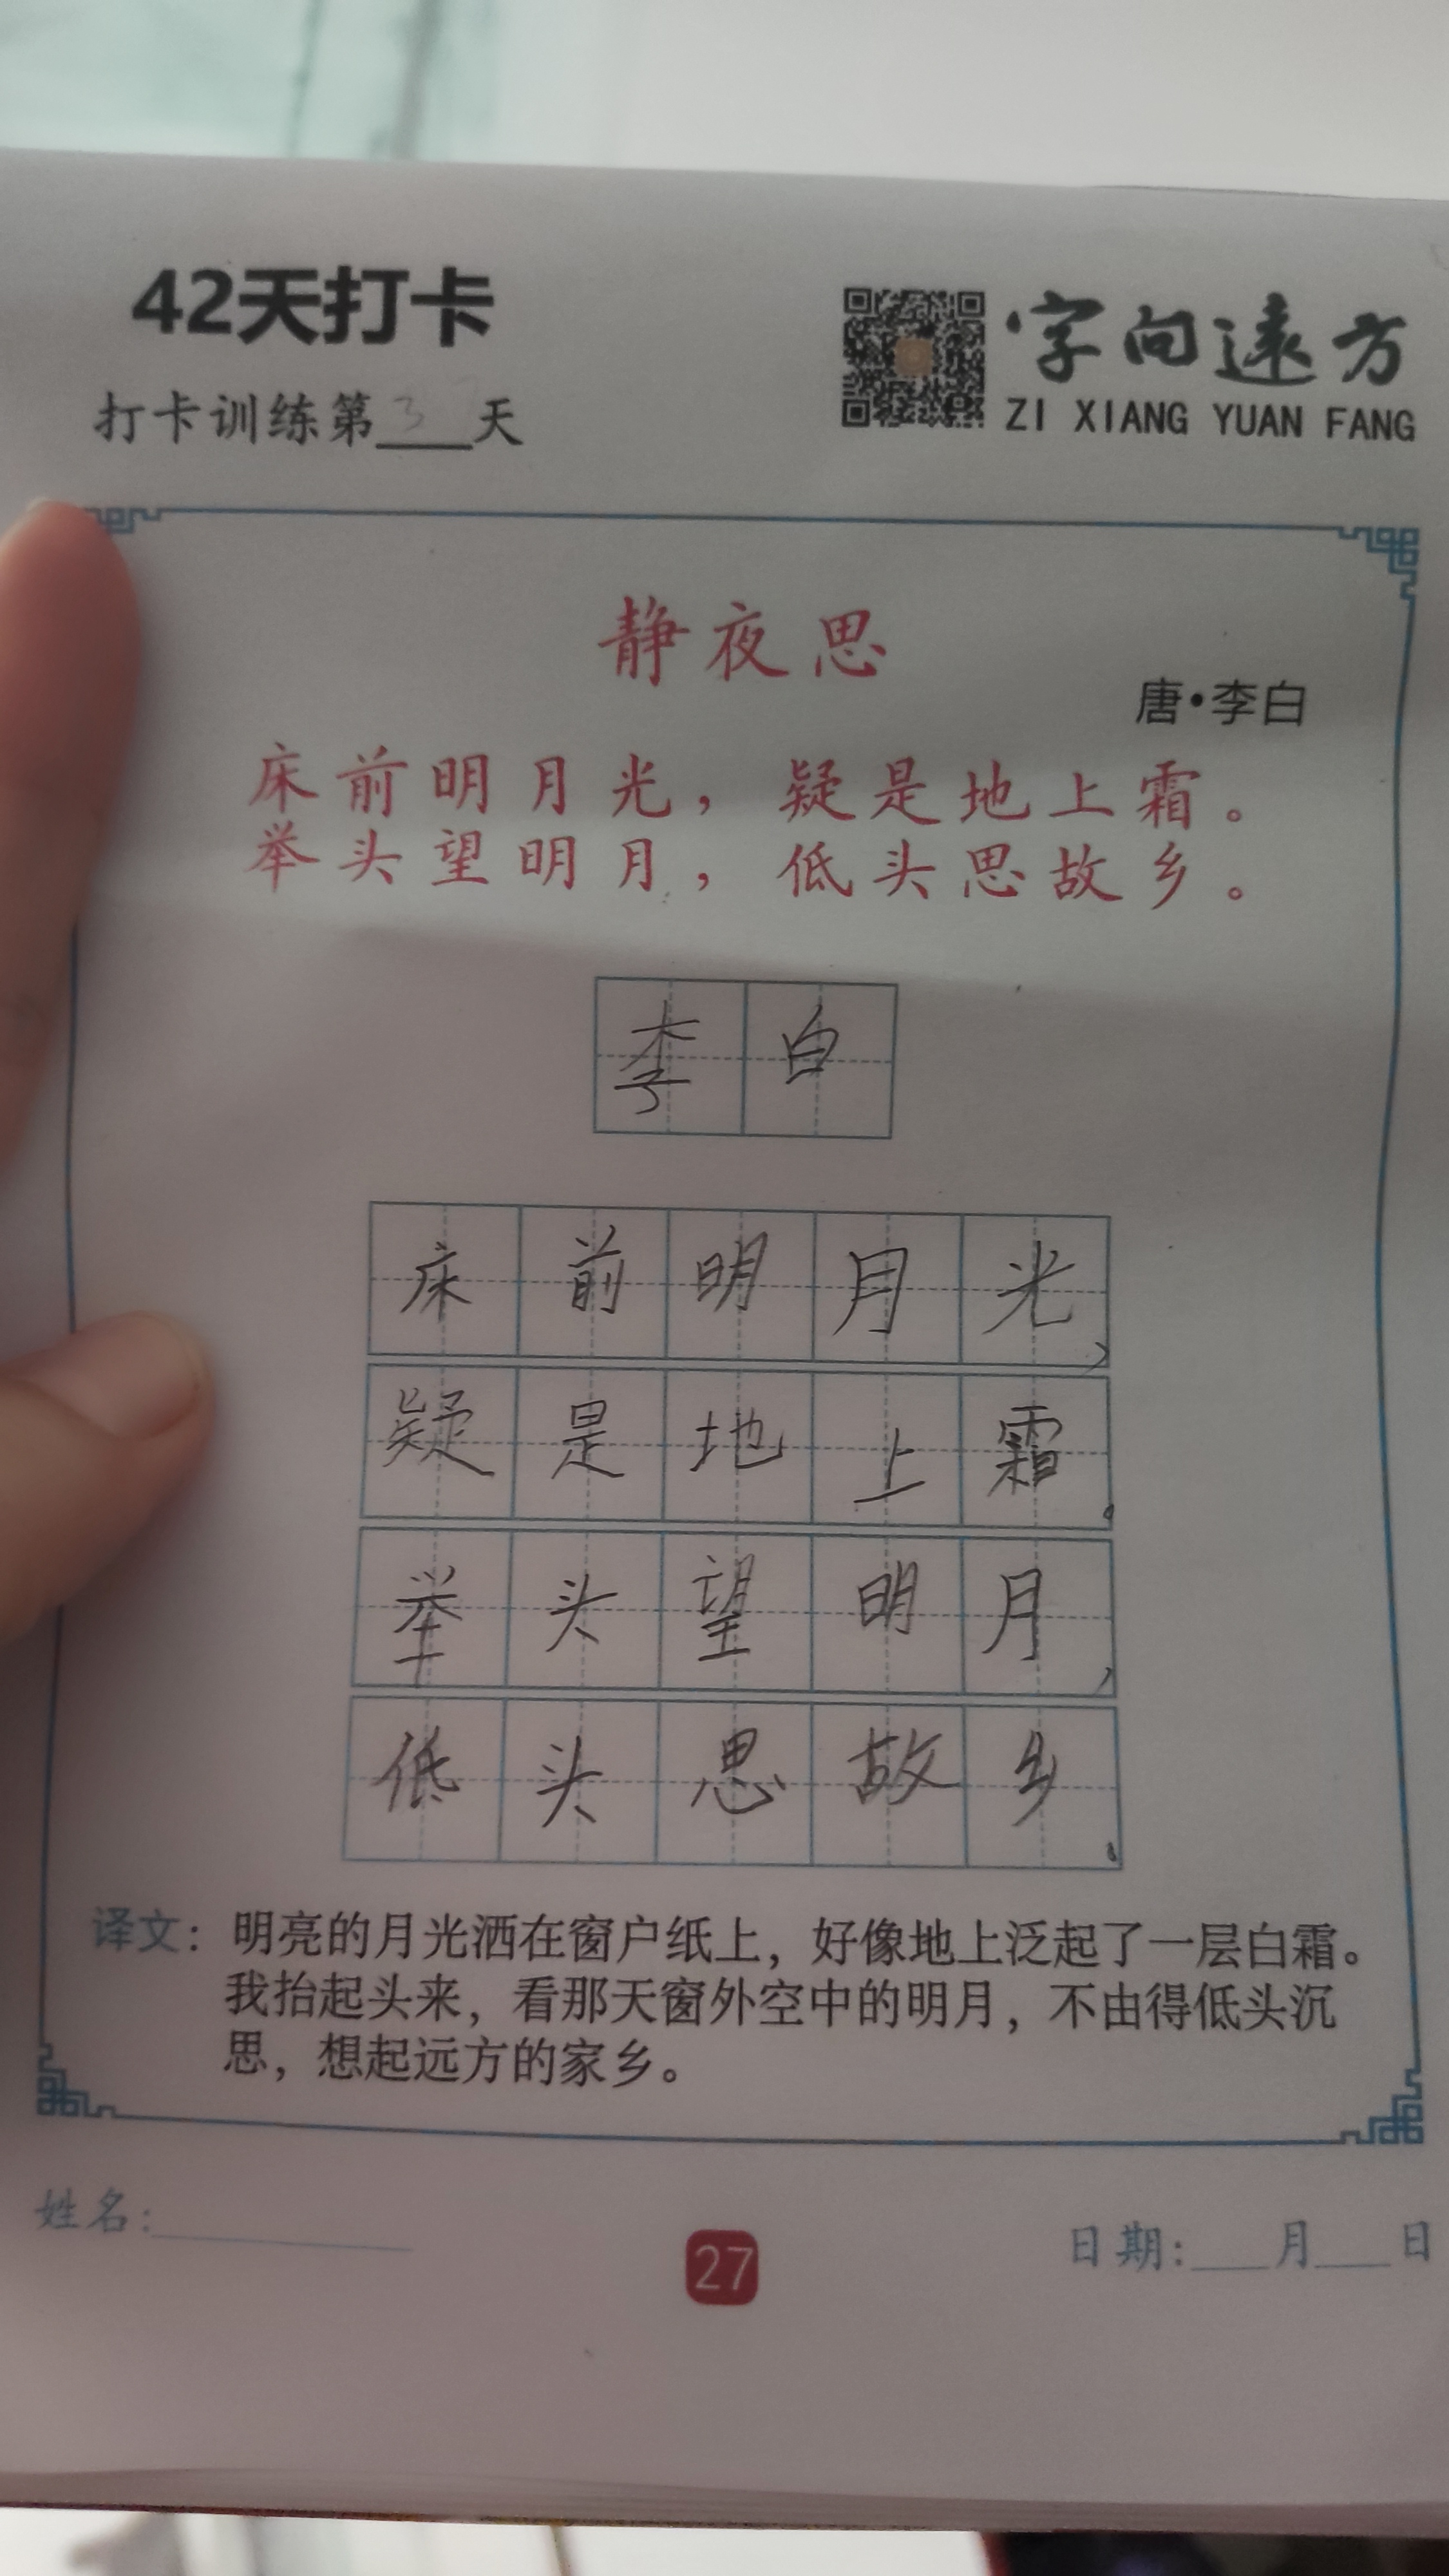 42天打卡
字向远方
ZI XIANG YUAN FANG
打卡训练第3天
静夜思
唐·李白
床前明月光，疑是地上霜。
举头望明月，低头思故乡。
李白
床前明月光，
疑是地上霜。
举头望明月，
低头思故乡。
译文：明亮的月光洒在窗户纸上，好像地上泛起了一层白霜。
我抬起头来，看那天窗外空中的明月，不由得低头沉
思，想起远方的家乡。
姓名:
27
日期:___月___日